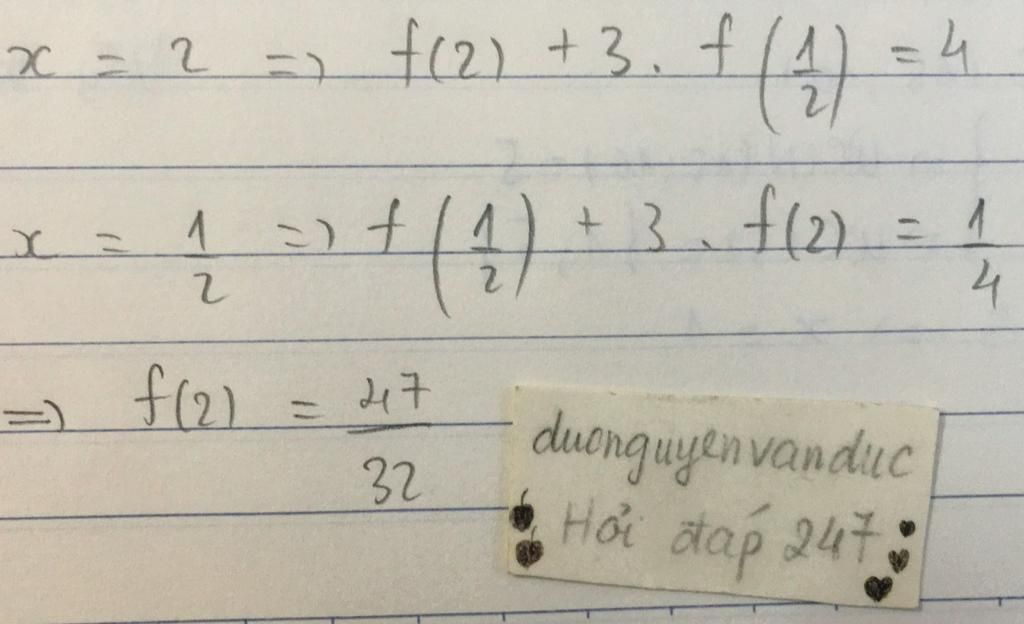 x = 2 => f(2) + 3. f(1/2) = 4
x = 1/2 => f(1/2) + 3. f(2) = 1/4
=> f(2) = 47/32
duonguyenvanduc
Hỏi đáp 247